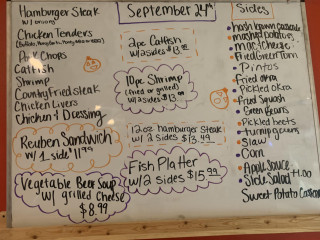 Hamburger Steak
w/ onions
Chicken Tenders
Pork Chops
Catfish
Shrimp
Country fried steak
Chicken Livers
Chicken & Dressing
Reuben Sandwich
w/ 1 side $11.99
Vegetable Beef Soup
w/ grilled cheese
$8.99
September 24th
2pc Catfish
w/ 2 sides $13.99
10pc Shrimp
(fried or grilled)
w/ 2 sides $13.99
12oz hamburger steak
w/ 2 sides $13.49
Fish Platter
w/ 2 sides $15.99
Sides
hash brown casserole
mashed potatoes
mac + cheese
Fried Green Tom
Pintos
Fried okra
Pickled okra
Fried Squash
Green Beans
Pickled beets
turnip greens
Slaw
Corn
Apple Sauce
Side Salad +1.00
Sweet Potato Cass